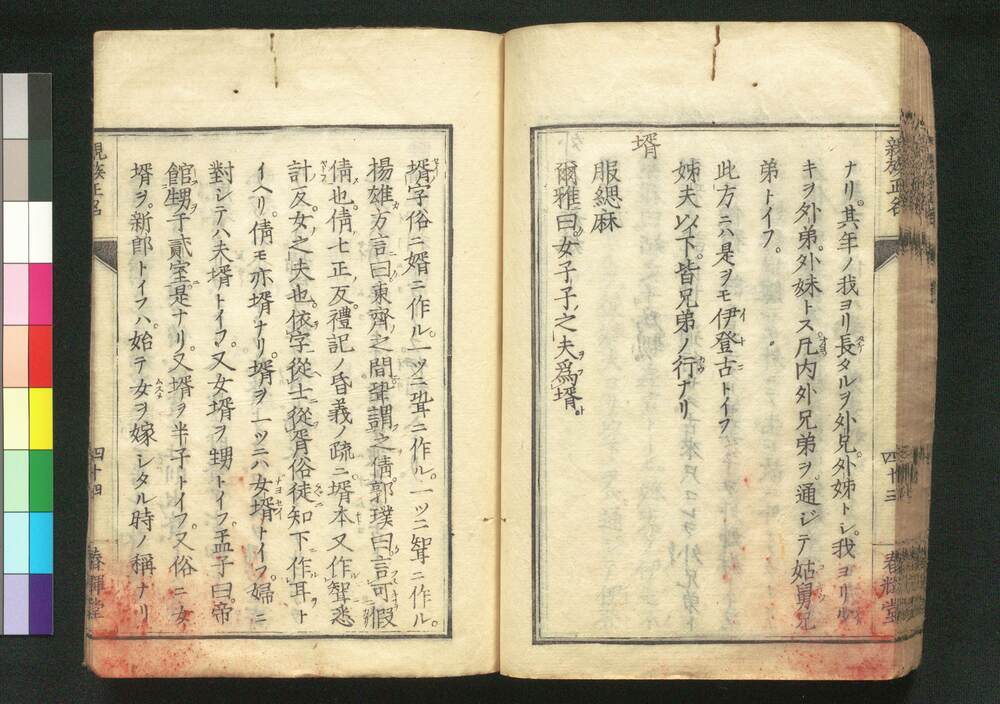 親族正名
四十三
春輝堂
ナリ。其年ノ我ヨリ長タルヲ外兄外姉トシ。我ヨリ少
キヲ外弟。外妹トス。凡内外兄弟ヲ。通ジテ姑舅兄
弟トイフ。
此方ニハ是ヲモ伊登古トイフ
姊夫以下。皆兄弟ノ行ナリ
壻
服緦麻
爾雅曰。女子子之夫爲壻。
壻字俗ニ婿ニ作ル。一ツニ聟ニ作ル。一ツニ聟ニ作ル。
揚雄方言曰東齊之間壻謂之倩。郭璞曰言可假
倩也。倩七正反。禮記ノ昏義ノ疏ニ壻本又作聟悉
計反。女之夫也。依字從士從胥俗徒知下作耳ト
イヘリ。倩モ亦壻ナリ。壻ヲ一ツニハ女壻トイフ。婦ニ
對シテハ夫壻トイフ。又女壻ヲ甥トイフ。孟子曰。帝
館甥于貳室是ナリ。又壻ヲ半子トイフ。又俗ニ女
壻ヲ。新郎トイフハ。始テ女ヲ嫁シタル時ノ稱ナリ
親族正名
四十四
春輝堂